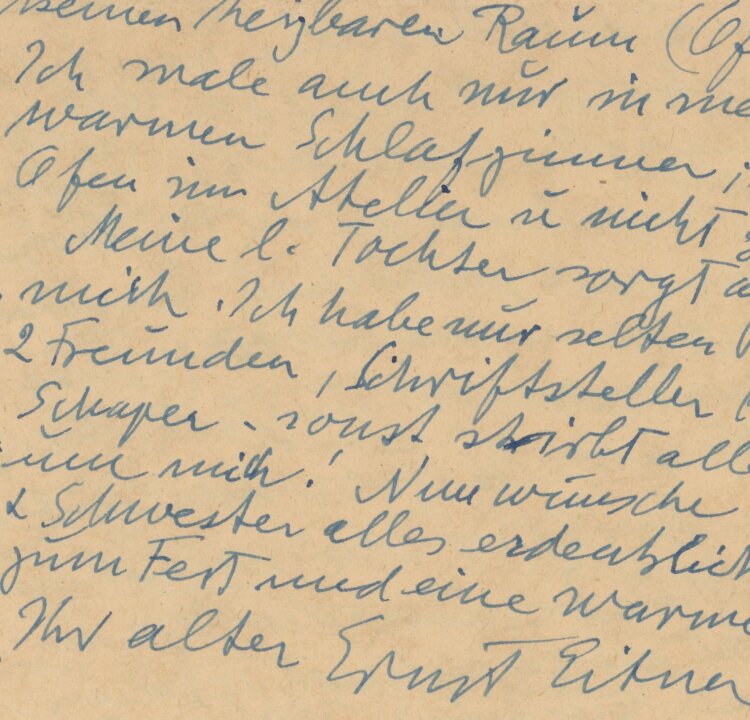 keinen heizbaren Raum (Of
Ich male auch nur in me
warmen Schlafzimmer,
Ofen im Atelier u nicht
Meine l. Tochter sorgt
mich. Ich habe nur selten
2 Freunden, Schriftsteller
Schaper - sonst stirbt all
um mich! Nun wünsche
& Schwester alles erdenklich
zum Fest und eine warme
Ihr alter Ernst Eitner